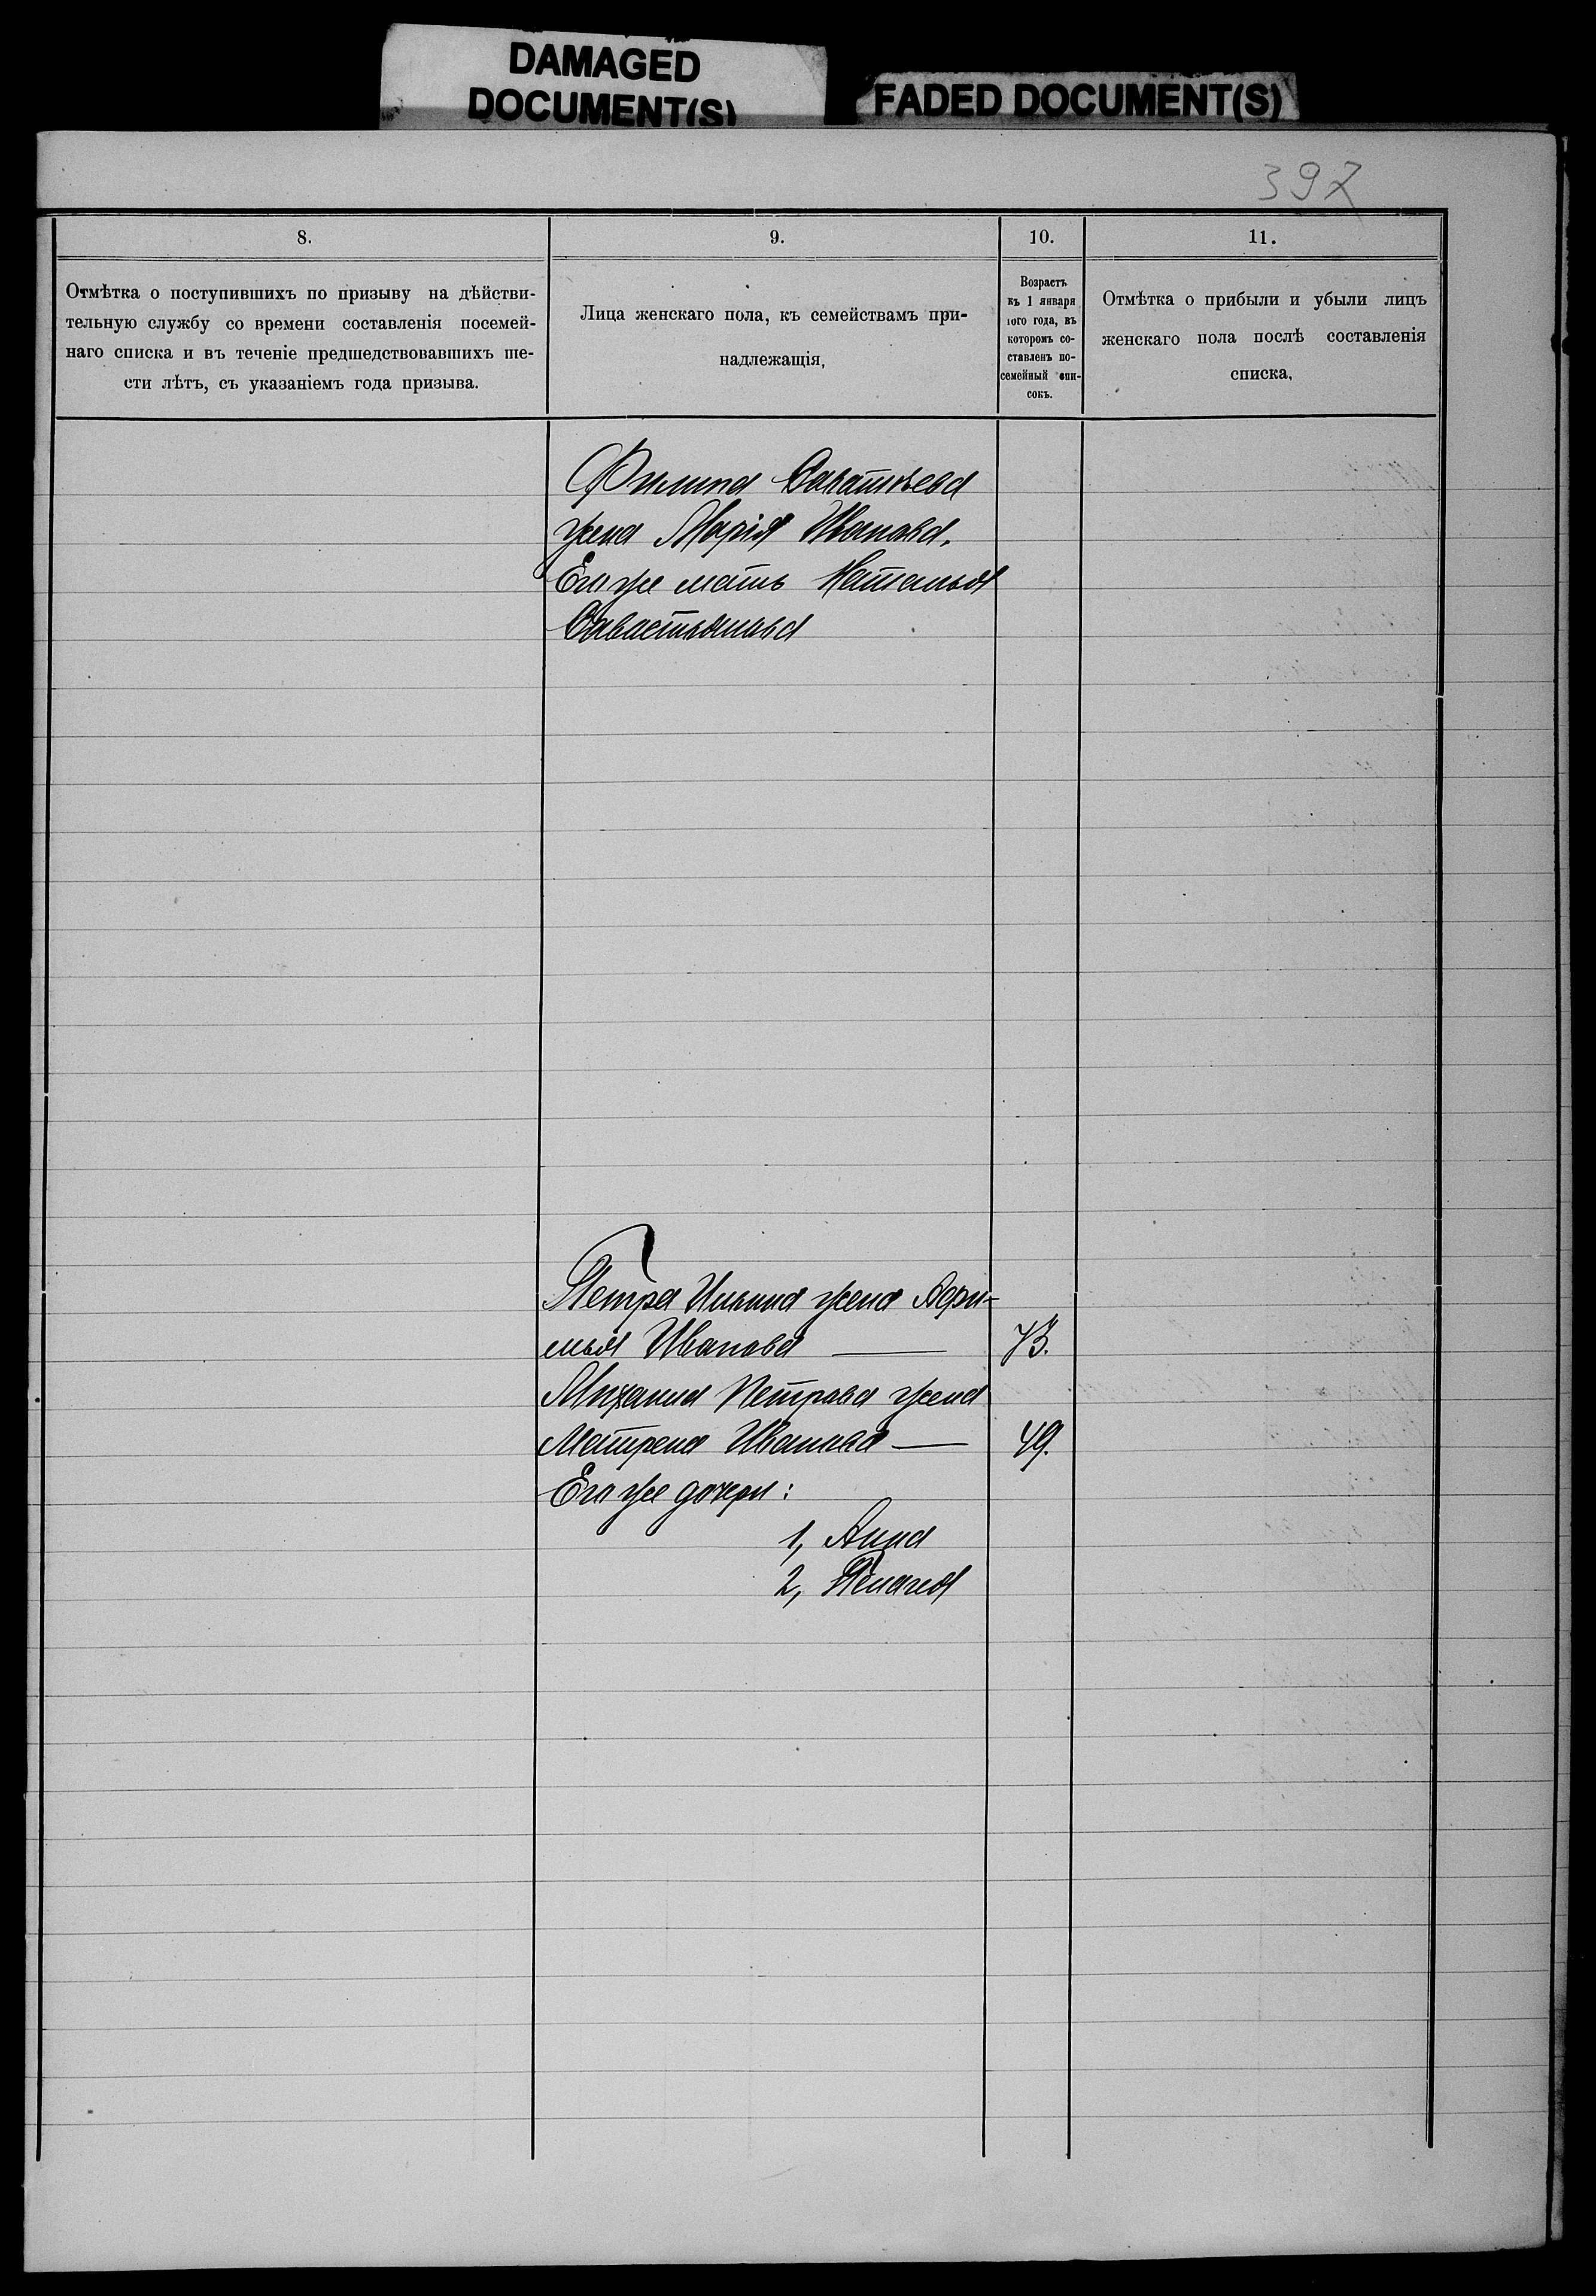 DAMAGED
DOCUMENT(S)
FADED DOCUMENT(S)
397
8.
9.
10.
11.
Отмѣтка о поступившихъ по призыву на дѣйстви-
тельную службу со времени составленія посемей-
наго списка и въ теченіе предшедствовавшихъ ше-
сти лѣтъ, съ указаніемъ года призыва.
Лица женскаго пола, къ семействамъ при-
надлежащія.
Возрастъ
къ 1 января
того года, въ
которомъ со-
ставленъ по-
семейный спи-
сокъ.
Отмѣтка о прибыли и убыли лицъ
женскаго пола послѣ составленія
списка.
Филипа Саватѣева
жена Марія Иванова.
Его же мать Наталья
Савастьянова
Петра Ильина жена Афи-
мья Иванова — 73.
Михаила Петрова жена
Матрена Иванова — 49.
Его же дочери:
1, Анна
2, Пелагея